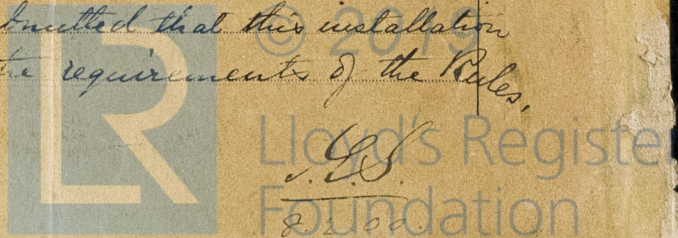 submitted that this installation
the requirements of the Rules.
J.E.S.
8.2.00.
© 2019
LR
Lloyd's Register
Foundation